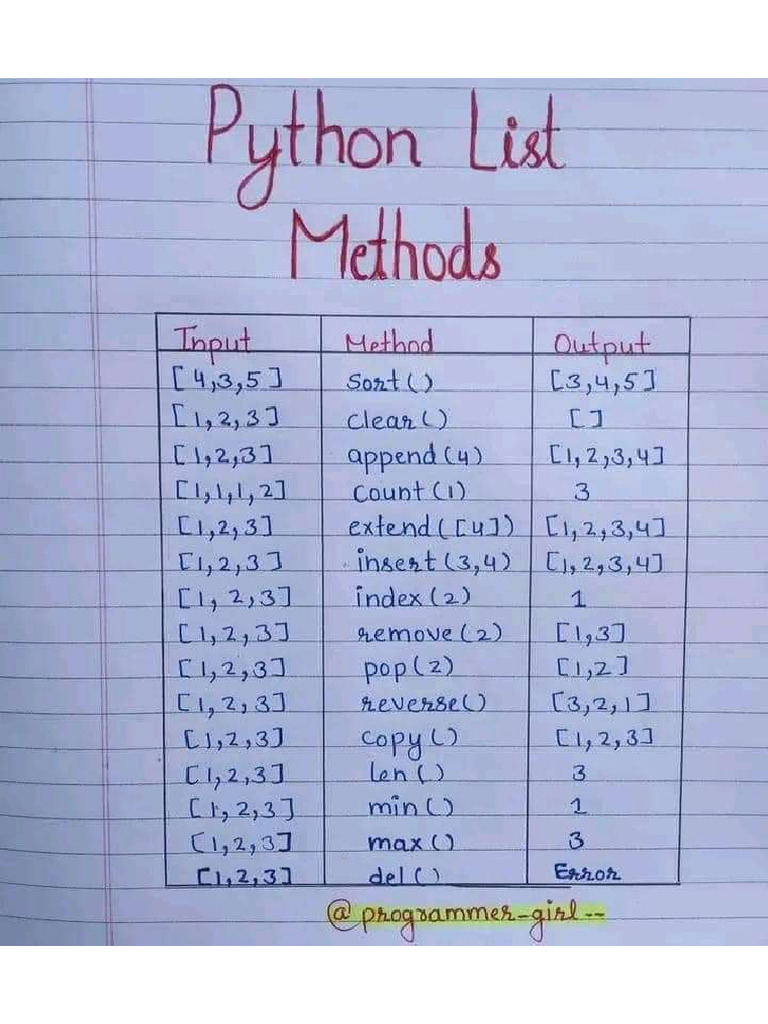 Python List
Methods
Input Method Output
[4,3,5] sort() [3,4,5]
[1,2,3] clear() []
[1,2,3] append(4) [1,2,3,4]
[1,1,1,2] count(1) 3
[1,2,3] extend([4]) [1,2,3,4]
[1,2,3] insert(3,4) [1,2,3,4]
[1,2,3] index(2) 1
[1,2,3] remove(2) [1,3]
[1,2,3] pop(2) [1,2]
[1,2,3] reverse() [3,2,1]
[1,2,3] copy() [1,2,3]
[1,2,3] len() 3
[1,2,3] min() 1
[1,2,3] max() 3
[1,2,3] del() Error
@programmer-girl--